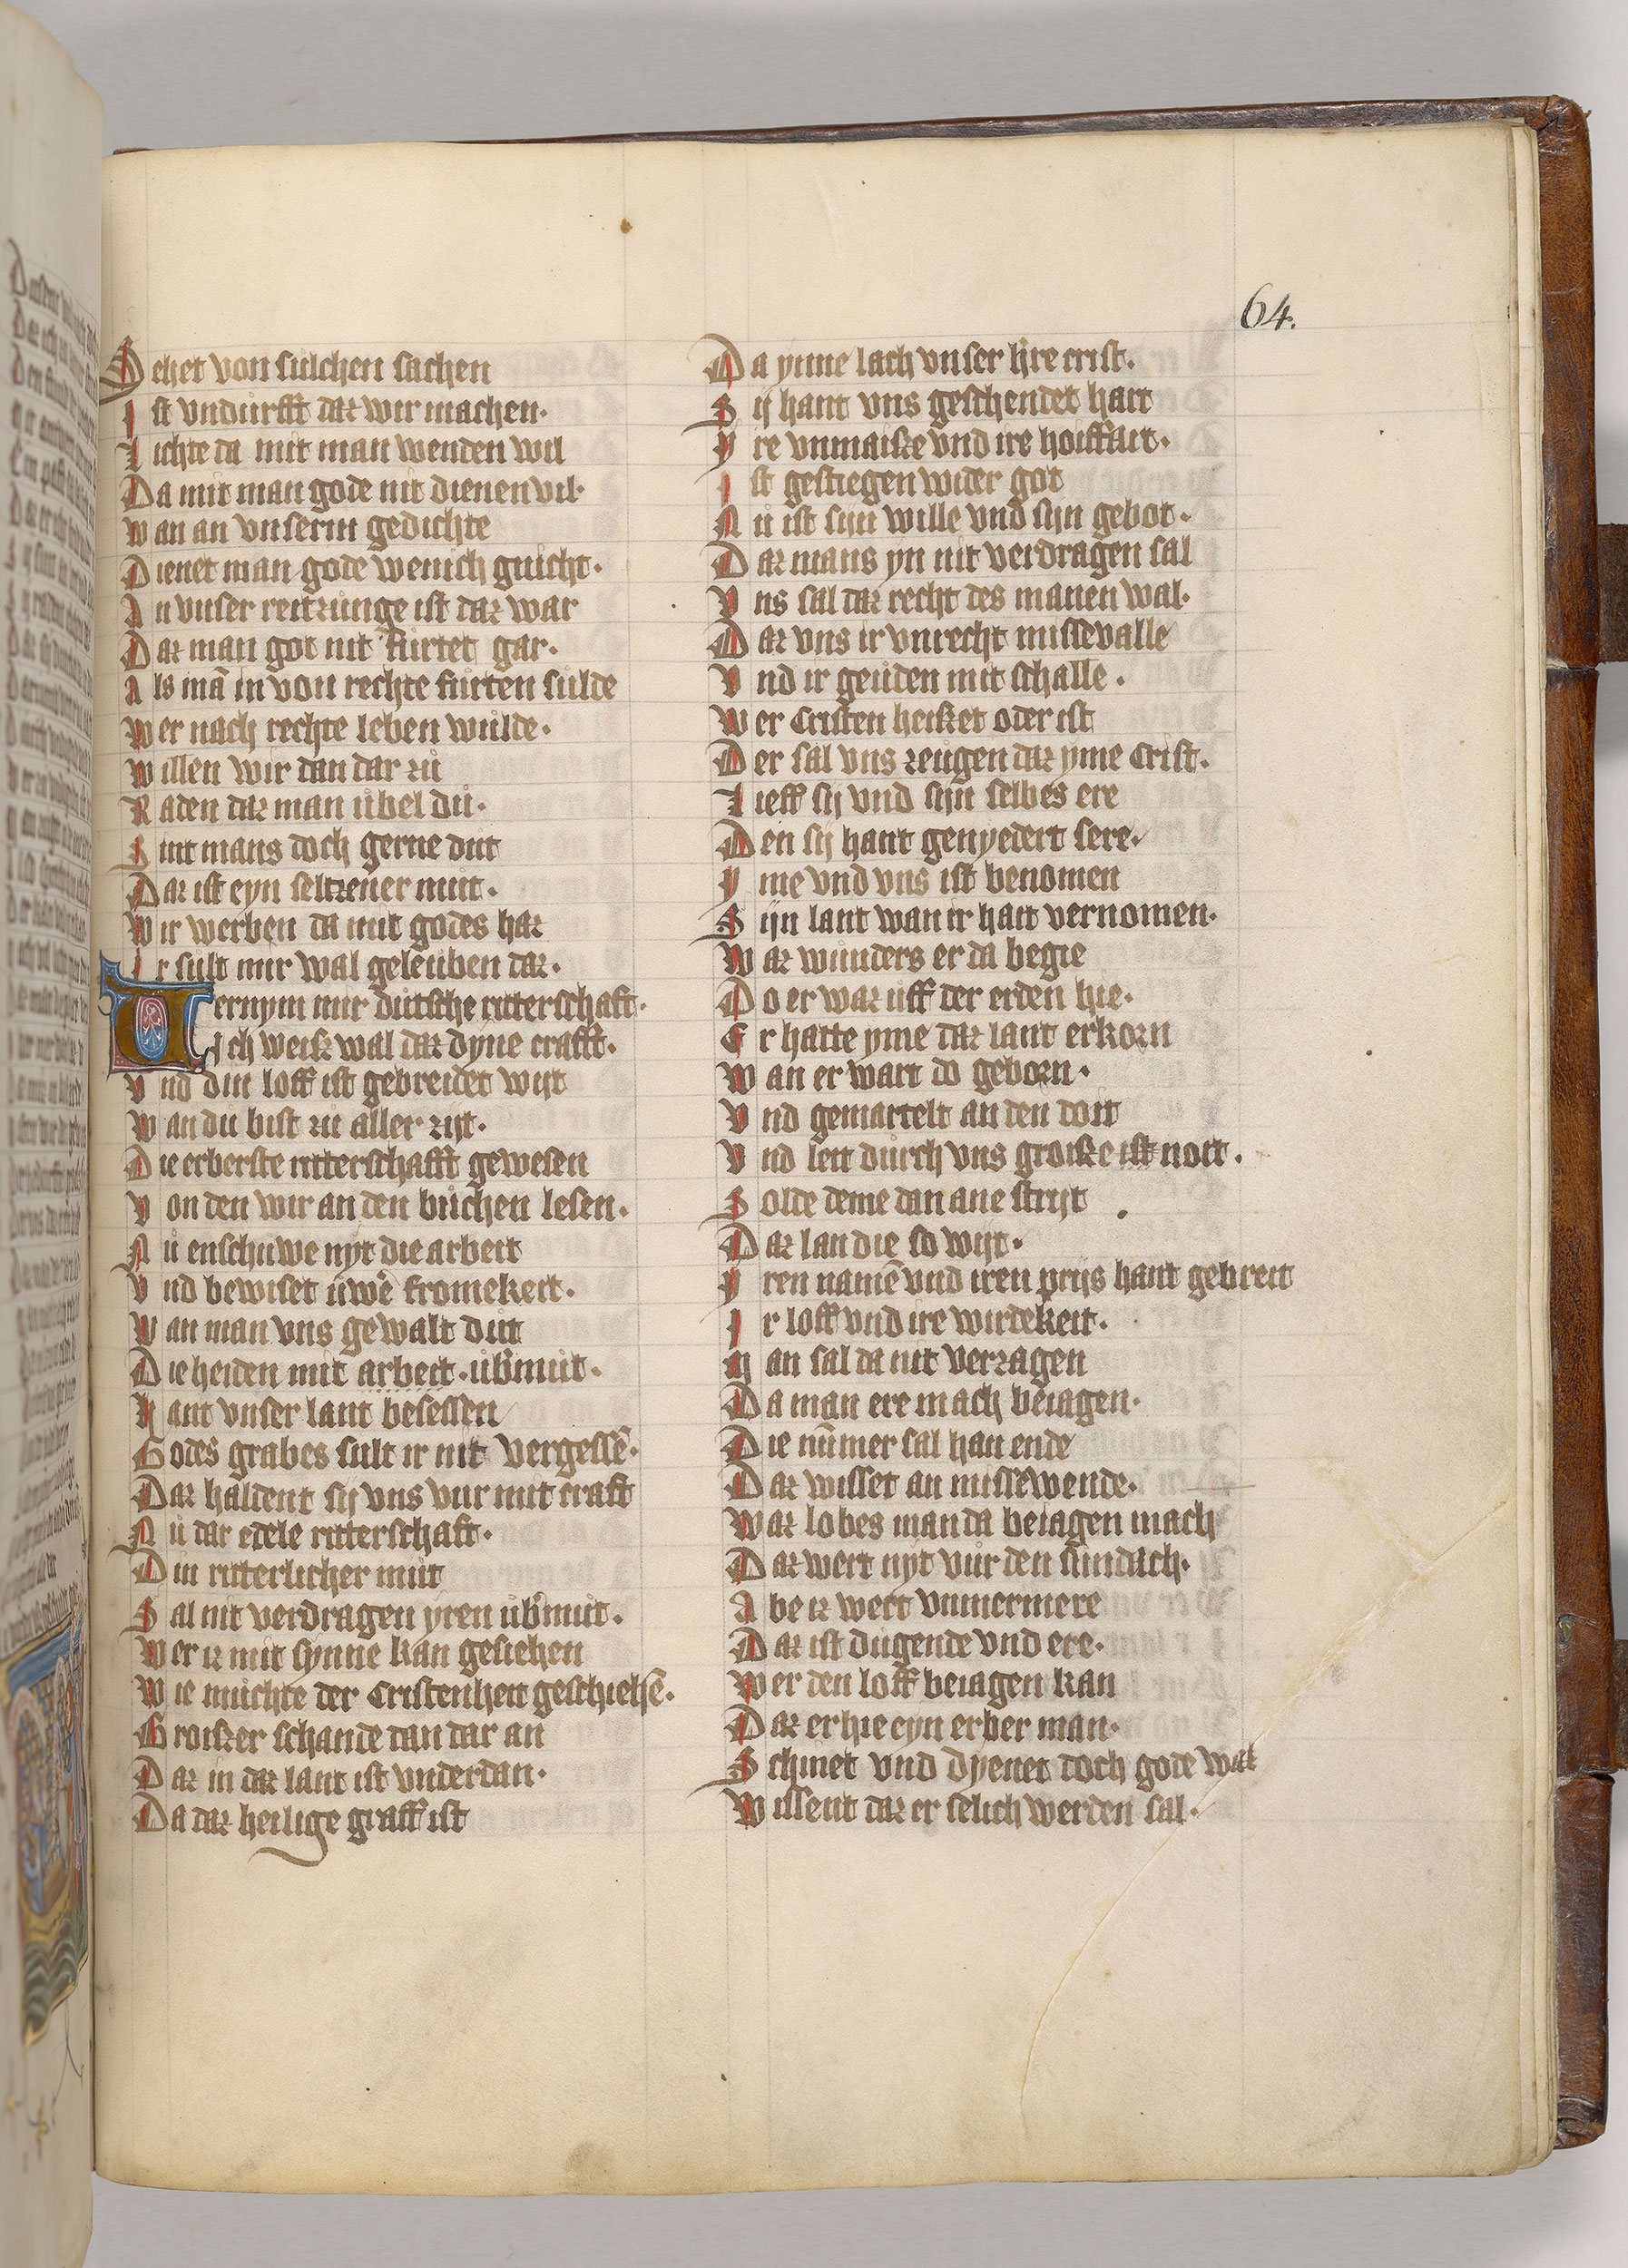 64.
Sehet von sulchen sachen
Ist vndurfft daz wir machen·
Lichte da mit man wenden wil
Da mit man gode nit dienen vil·
Wan an vnserm gedichte
Dienet man gode wenich guicht·
In vnser reitzunge ist daz war
Daz man got nit furtet gar·
Als mā in von rechte furten sulde
Wer nach rechte leben wulde·
Willen wir dan dar zů
Raden daz man ůbel dů·
Sint mans doch gerne dut
Daz ist eyn seltzener mut·
Wir werben da mit godes haz
Ir sult mir wal geleuben daz·
Vernym mir dutsche ritterschaft·
Ich weiß wal daz dyne crafft·
Vnd din loff ist gebreidet wijt
Wan du bist zu aller zijt·
Die erberste ritterschafft gewesen
Von den wir an den bůchen lesen·
Nů enschuwe nyt die arbeit
Vnd bewiset uwē fromekeit·
Wan man vns gewalt dut
Die heiden mit arbeit·ub̄mut·
Hant vnser lant besessen
Godes grabes sult ir nit vergessē·
Daz haldent sij vns vur mit craft
Nů dar edele ritterschaft·
Din ritterlicher mut
Sal nit verdragen yren ub̄mut·
Wer iz mit synne kan gesiehen
Wie můchte der Cristenheit geschiehē·
Groißer schande dan dar an
Daz in daz lant ist vnderdan·
Da daz heilige graff ist
Da ynne lach vnser h̄re crist·
Sij hant vns geschendet hart
Yre vnmaiße vnd ire hoiffart·
Ist gestiegen wider got
Nů ist sijn wille vnd sijn gebot·
Daz mans yn nit verdragen sal
Vns sal daz recht des manen wal·
Daz vns ir vnrecht missevalle
Vnd ir geuden mit schalle·
Wer Cristen heißet oder ist
Der sal vns zeugen daz yme Crist·
Lieff sij vnd sijn selbes ere
Den sij hant genyedert sere·
Yme vnd vns ist benomen
Sijn lant wan ir hatt vernomen·
Waz wunders er da begie
Do er waz uff der erden hie·
Er hatte yme daz lant erkorn
Wan er wart do geborn·
Vnd gemartelt an den dott
Vnd leit durch vns groiße ist nott·
Solde deme dan ane strijt
Daz lan die so wijt·
Yren namē vnd iren prijs hant gebreit
Ir loff vnd ire wirdekeit·
Man sal da nit verzagen
Da man ere mach beiagen·
Die nūmer sal han ende
Daz wisset an missewende·
Waz lobes man da beiagen mach
Daz wert nyt vur den sundach·
Abe iz wert vmmermere
Daz ist dugende vnd ere·
Wer den loff beiagen kan
Daz er hie eyn erber man·
Schinet vnd dyenet doch gode wal
Wissent daz er selich werden sal·